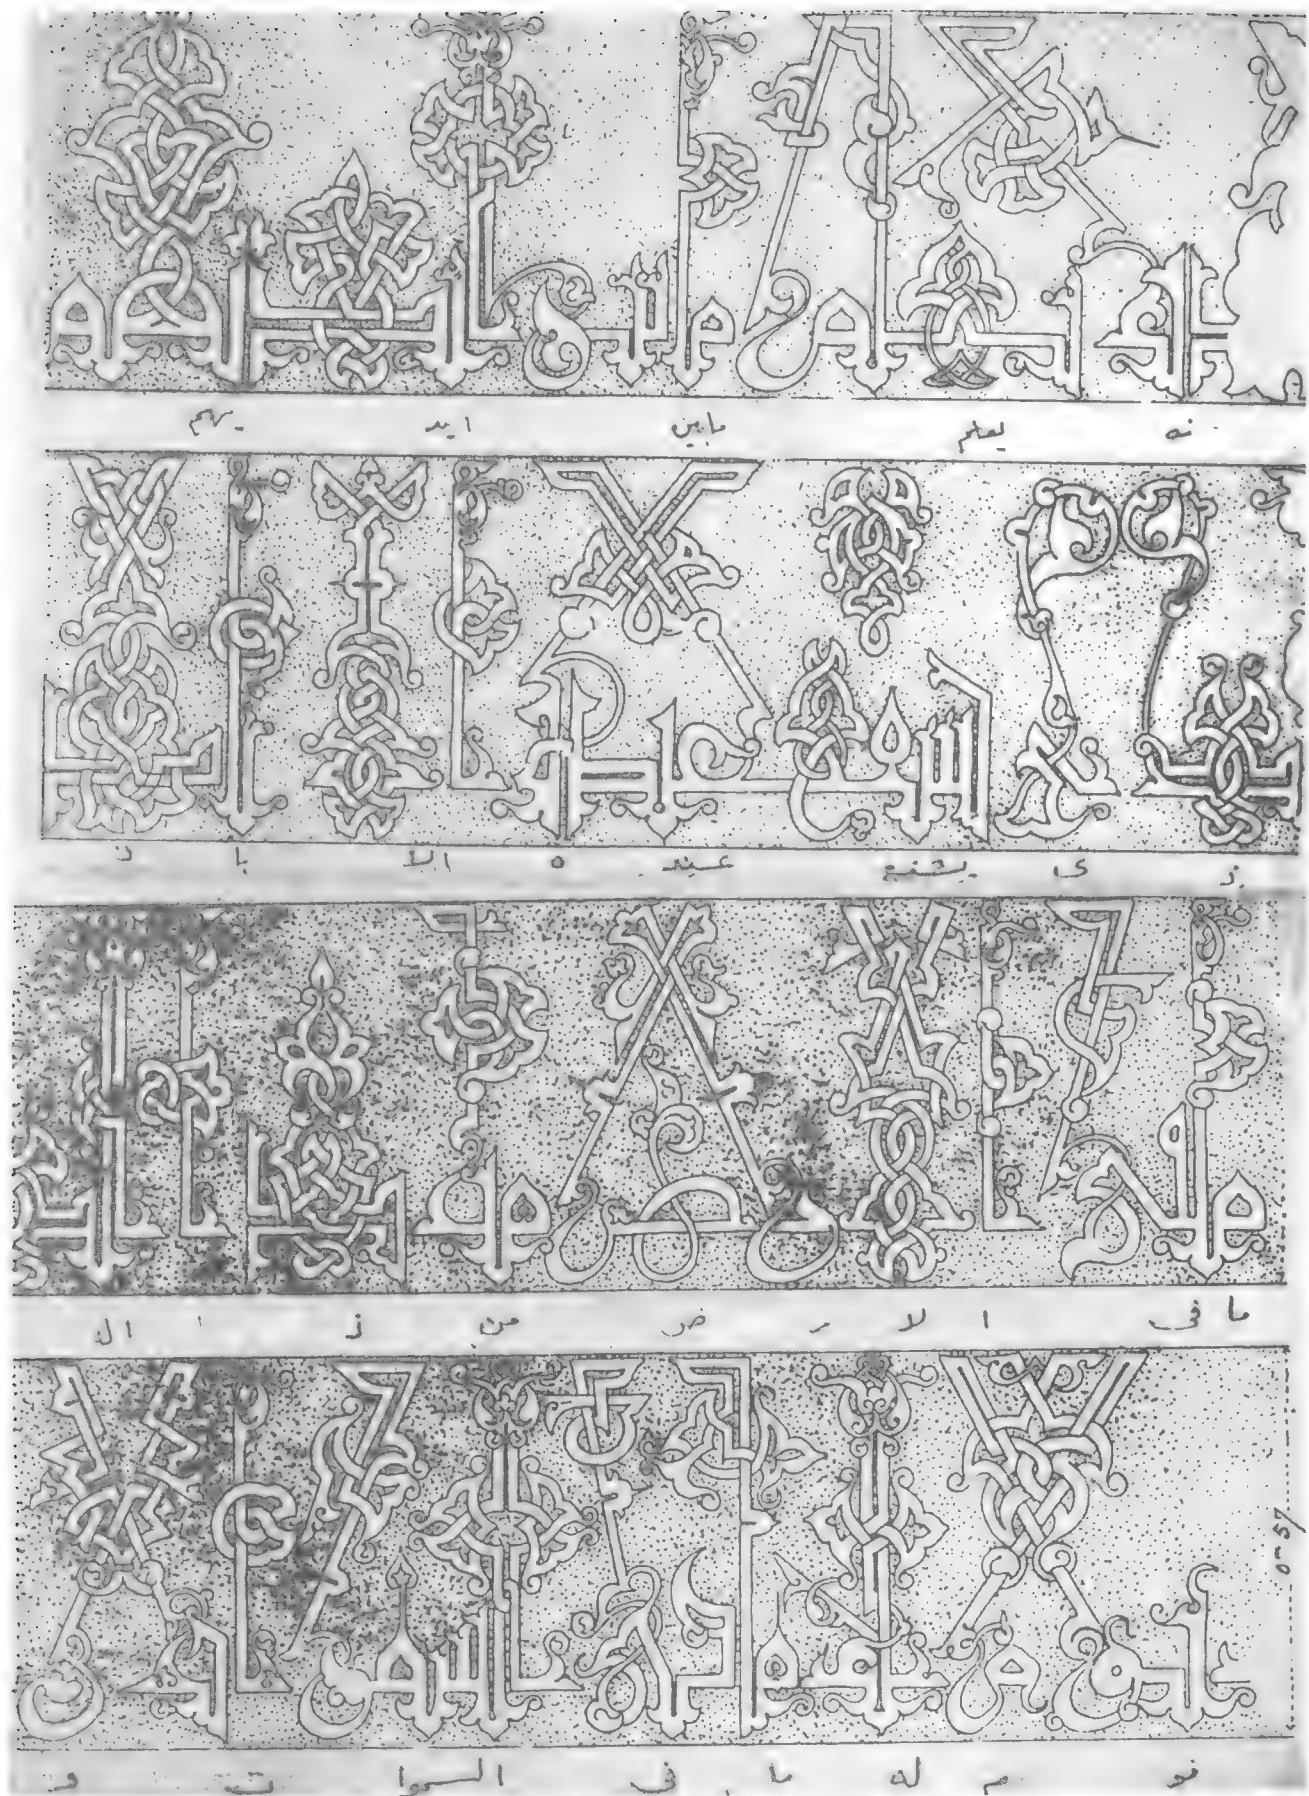 نه يعلم مابين ايد يهم
ذ ى يشفع عند ه الا با ذ
ما فى ا لا ر ض من ذ ا ال
نو م له ما فى السموا ت و